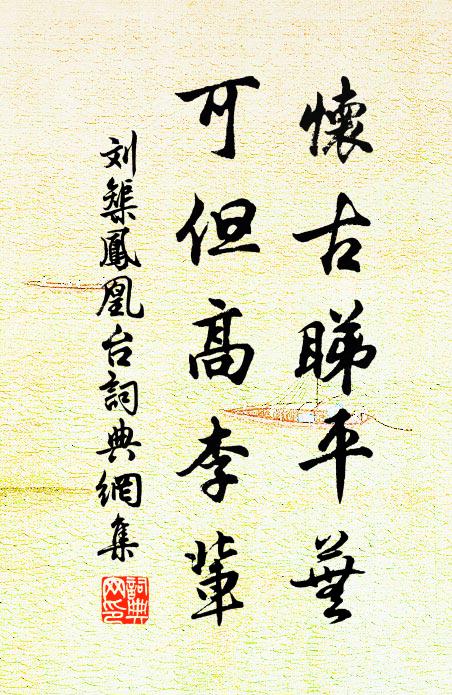 懷古睇平蕪
可但高李輩
刘榘鳳凰台詞典網集
詞典网印